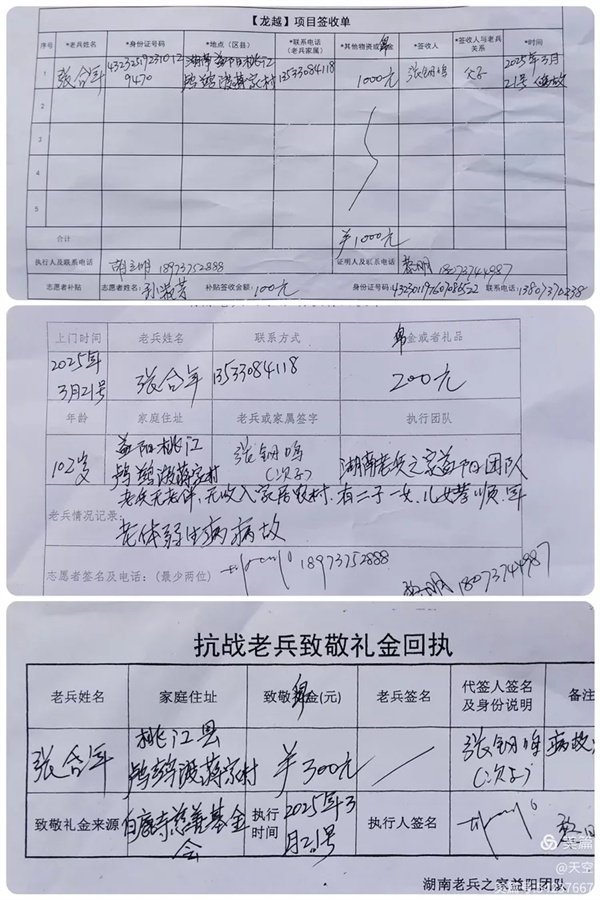 【龙越】项目签收单
序号 *老兵姓名 *身份证号码 *地点（区县） *联系电话（老兵家属） *其他物资或 金 *签收人 *签收人与老兵关系 *时间
1 张合年 4323251923101 9470 湖南益阳桃江鸬鹚渡蒋家村 13533084118 1000元 张钢鸣 父子 2025年3月21号 病故
2
3
4
5
合计 ¥1000元
执行人及联系电话 胡立明 18973752888 证明人及联系电话 黎明 18073744987
志愿者补贴 志愿者姓名: 孙淑芳 补贴签收金额: 100元 身份证号码: 联系电话:
上门时间 老兵姓名 联系方式 金或者礼品
2025年3月21号 张合年 13533084118 200元
年龄 家庭住址 老兵或家属签字 执行团队
102岁 益阳桃江鸬鹚渡蒋家村 张钢鸣（次子） 湖南老兵之家益阳团队
老兵情况记录: 老兵无老伴，无收入家居农村，有二子一女，儿女孝顺，因
老体弱生病病故
志愿者签名及电话：（最少两位） 18973752888 黎明 18073744987
抗战老兵致敬礼金回执
老兵姓名 家庭住址 致敬 金(元) 老兵签名 代签人签名及身份说明 备注
张合年 桃江县鸬鹚渡蒋家村 ¥300元 张钢鸣（次子） 病故
致敬礼金来源 百康寺慈善基金会 执行时间 2025年3月21号 执行人签名
湖南老兵之家益阳团队
美篇
@天空